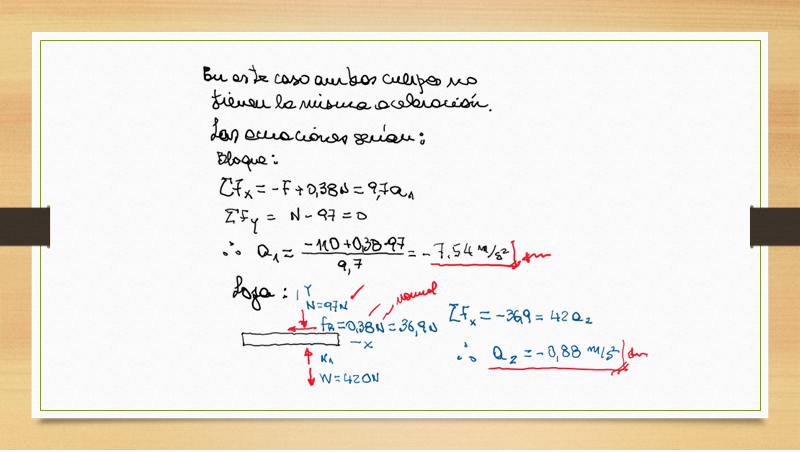 En este caso ambos cuerpos no
tienen la misma aceleración.
Las ecuaciones serían:
Bloque:
ΣFx = -F + 0,38N = 9,7a₁
ΣFy = N - 97 = 0
∴ a₁ = (-110 + 0,38·97) / 9,7 = -7.54 m/s²
Losa:
Y
N=97N
normal
fR = 0,38N = 36,9N
-x
N₁
W=420N
ΣFx = -36,9 = 42a₂
∴ a₂ = -0,88 m/s²